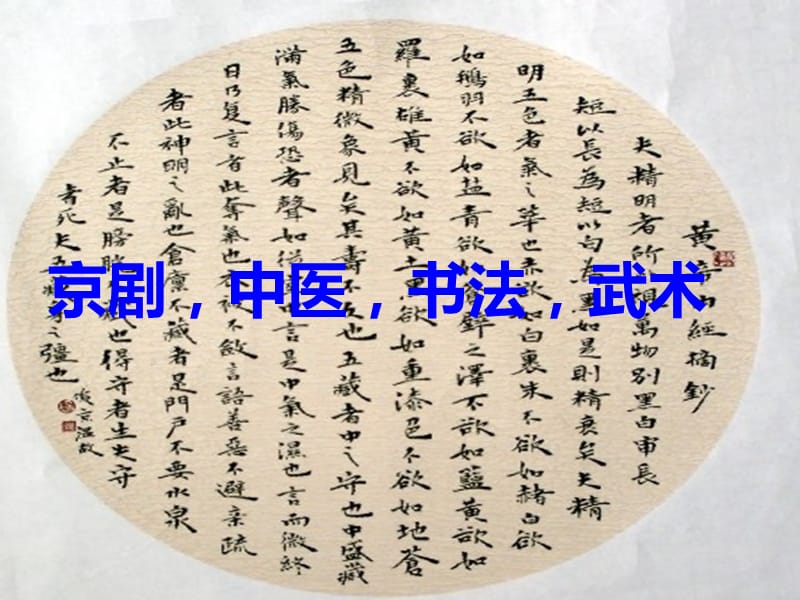 京剧，中医，书法，武术
黃內經摘鈔
夫精明者所以視萬物別黑白審長
短以長為短以白為黑如是則精衰矣夫精
明五色者氣之華也赤欲如白裹朱不欲如赭白欲
如鵝羽不欲如鹽青欲如蒼璧之澤不欲如藍黃欲如
羅裹雄黃不欲如黃土黑欲如重漆色不欲如地蒼
五色精微象見矣其壽不久也五藏者中之守也中盛藏
滿氣勝傷恐者聲如從室中言是中氣之濕也言而微終
日乃复言者此奪氣也衣被不斂言語善惡不避親疏
者此神明之亂也倉廩不藏者是門戶不要水泉
不止者是膀胱不藏也得守者生失守
者死夫五者之彊也